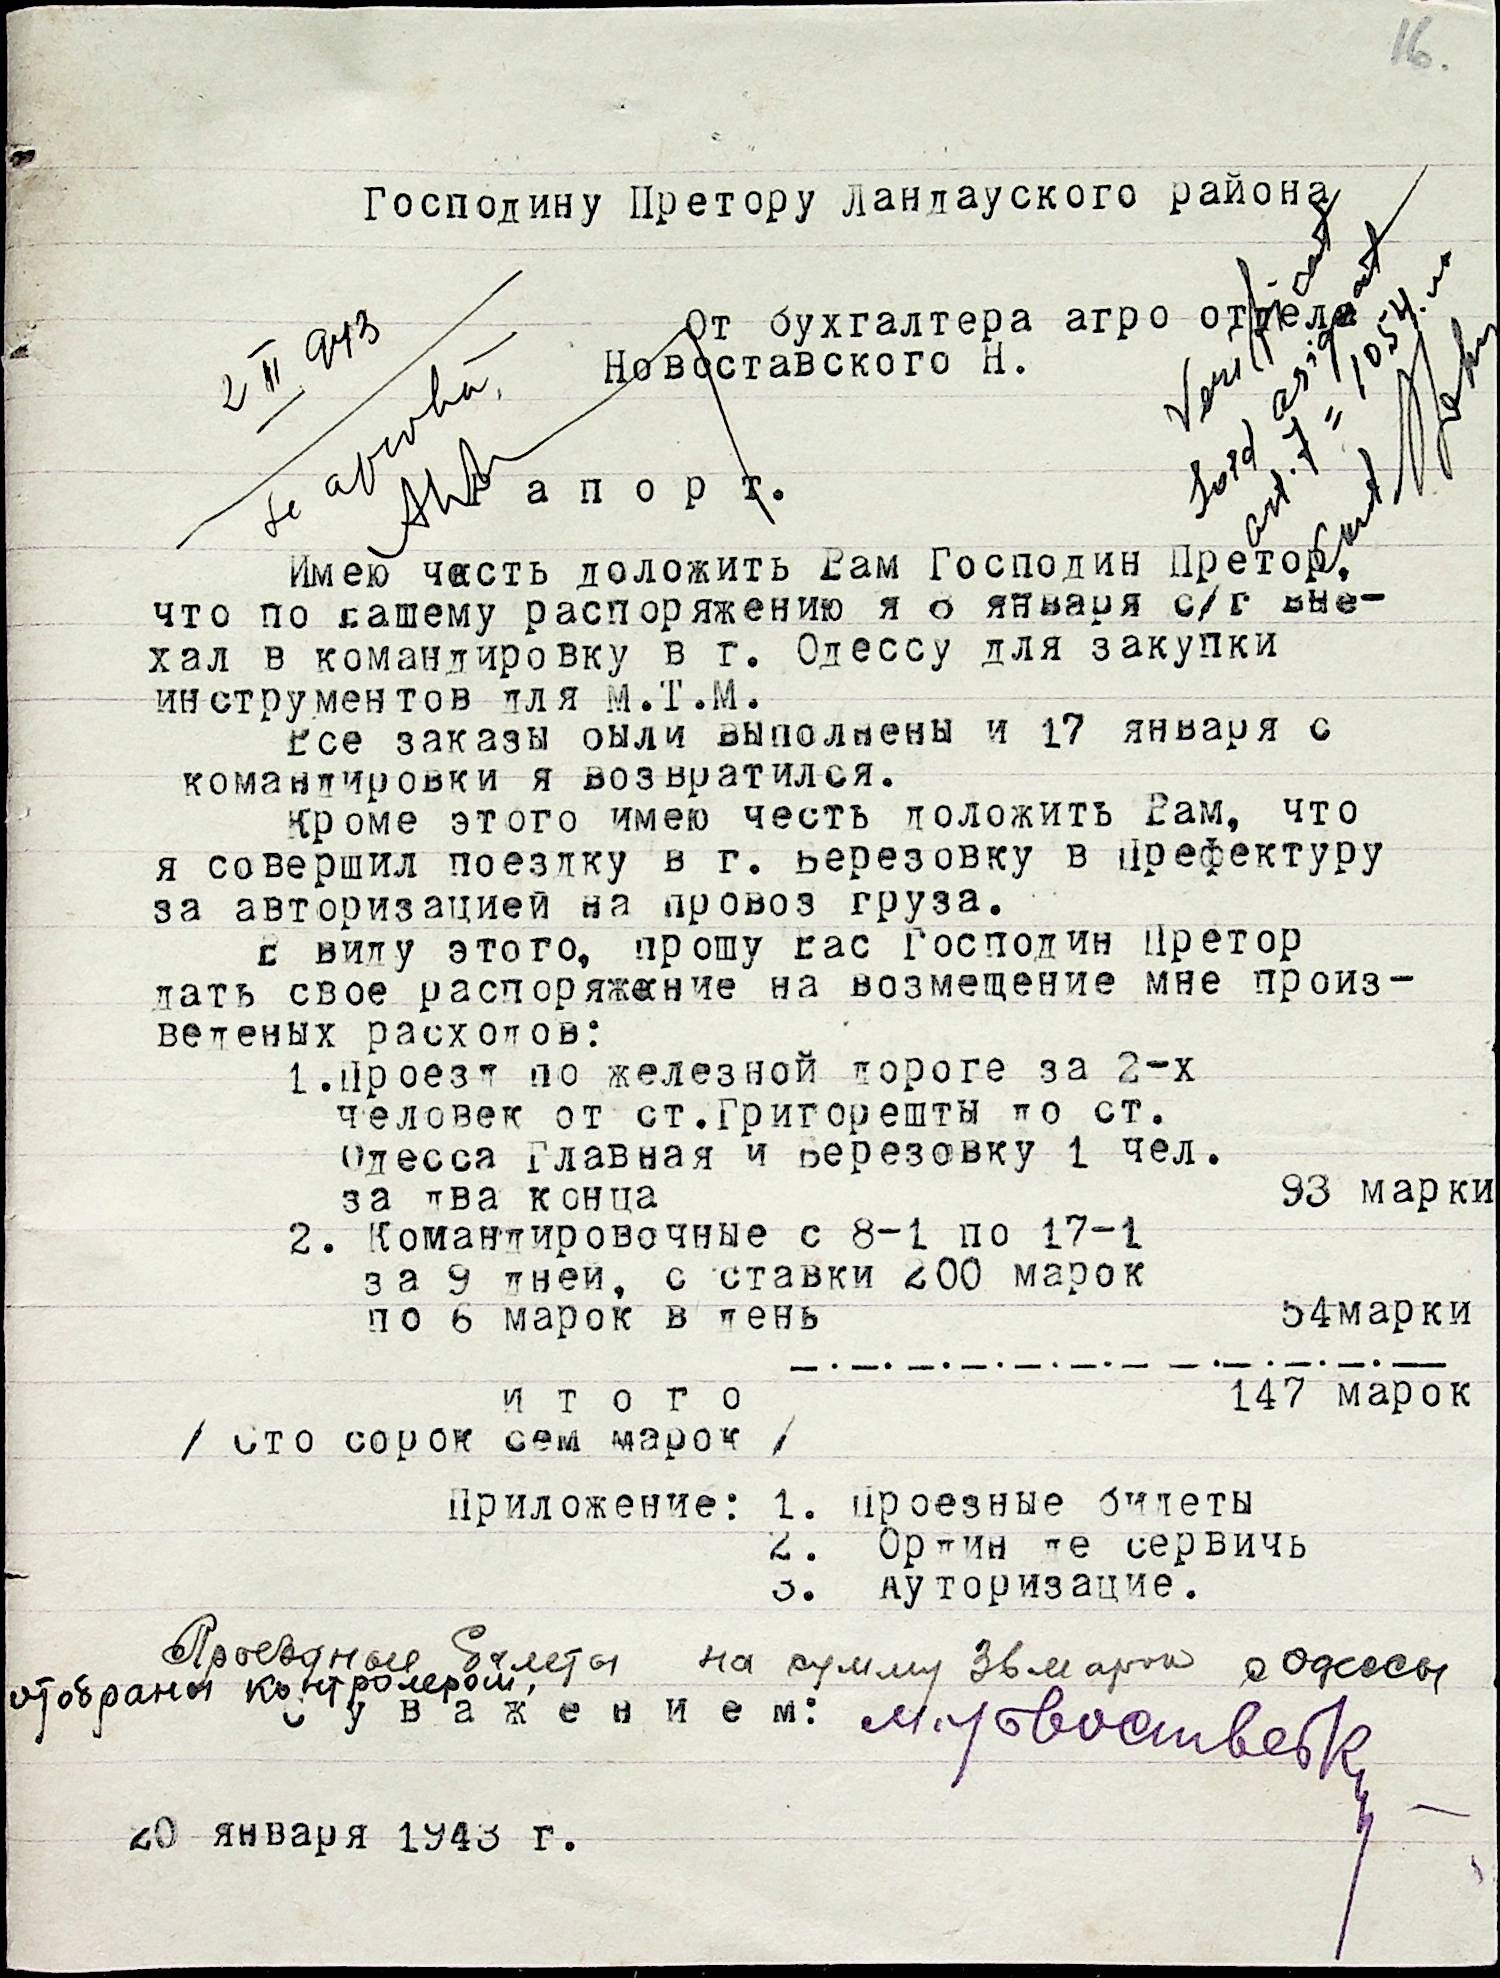 16.
Господину Претору Ландауского района
От бухгалтера агро отдела
Новоставского Н.
2 II 943
se aprobă.
Verificat
Sold asignat
art. 7 = 1054.
Рапорт.
Имею честь доложить Вам Господин Претор,
что по вашему распоряжению я 8 января с/г вые-
хал в командировку в г. Одессу для закупки
инструментов для М.Т.М.
Все заказы были выполнены и 17 января с
командировки я возвратился.
Кроме этого имею честь доложить Вам, что
я совершил поездку в г. Березовку в Префектуру
за авторизацией на провоз груза.
В виду этого, прошу Вас Господин Претор
дать свое распоряжение на возмещение мне произ-
веденых расходов:
1.Проезд по железной дороге за 2-х
человек от ст.Григорешты до ст.
Одесса Главная и Березовку 1 чел.
за два конца 93 марки
2. Командировочные с 8-1 по 17-1
за 9 дней, с ставки 200 марок
по 6 марок в день 54марки
итого 147 марок
/ Сто сорок сем марок /
Приложение: 1. Проезные билеты
2. Ордин де сервичь
3. Ауторизацие.
Проездные билеты на сумму 36 марок с Одессы
отобраны контролером,
С уважением:
20 января 1943 г.